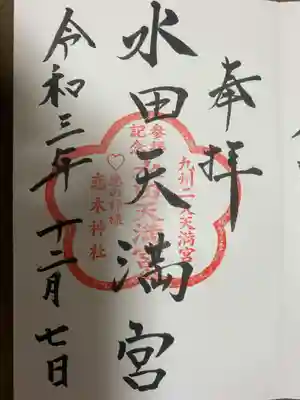 奉拝
水田天満宮
令和三年十二月七日
九州二大天満宮
参拝記念
水田天満宮
恋木神社